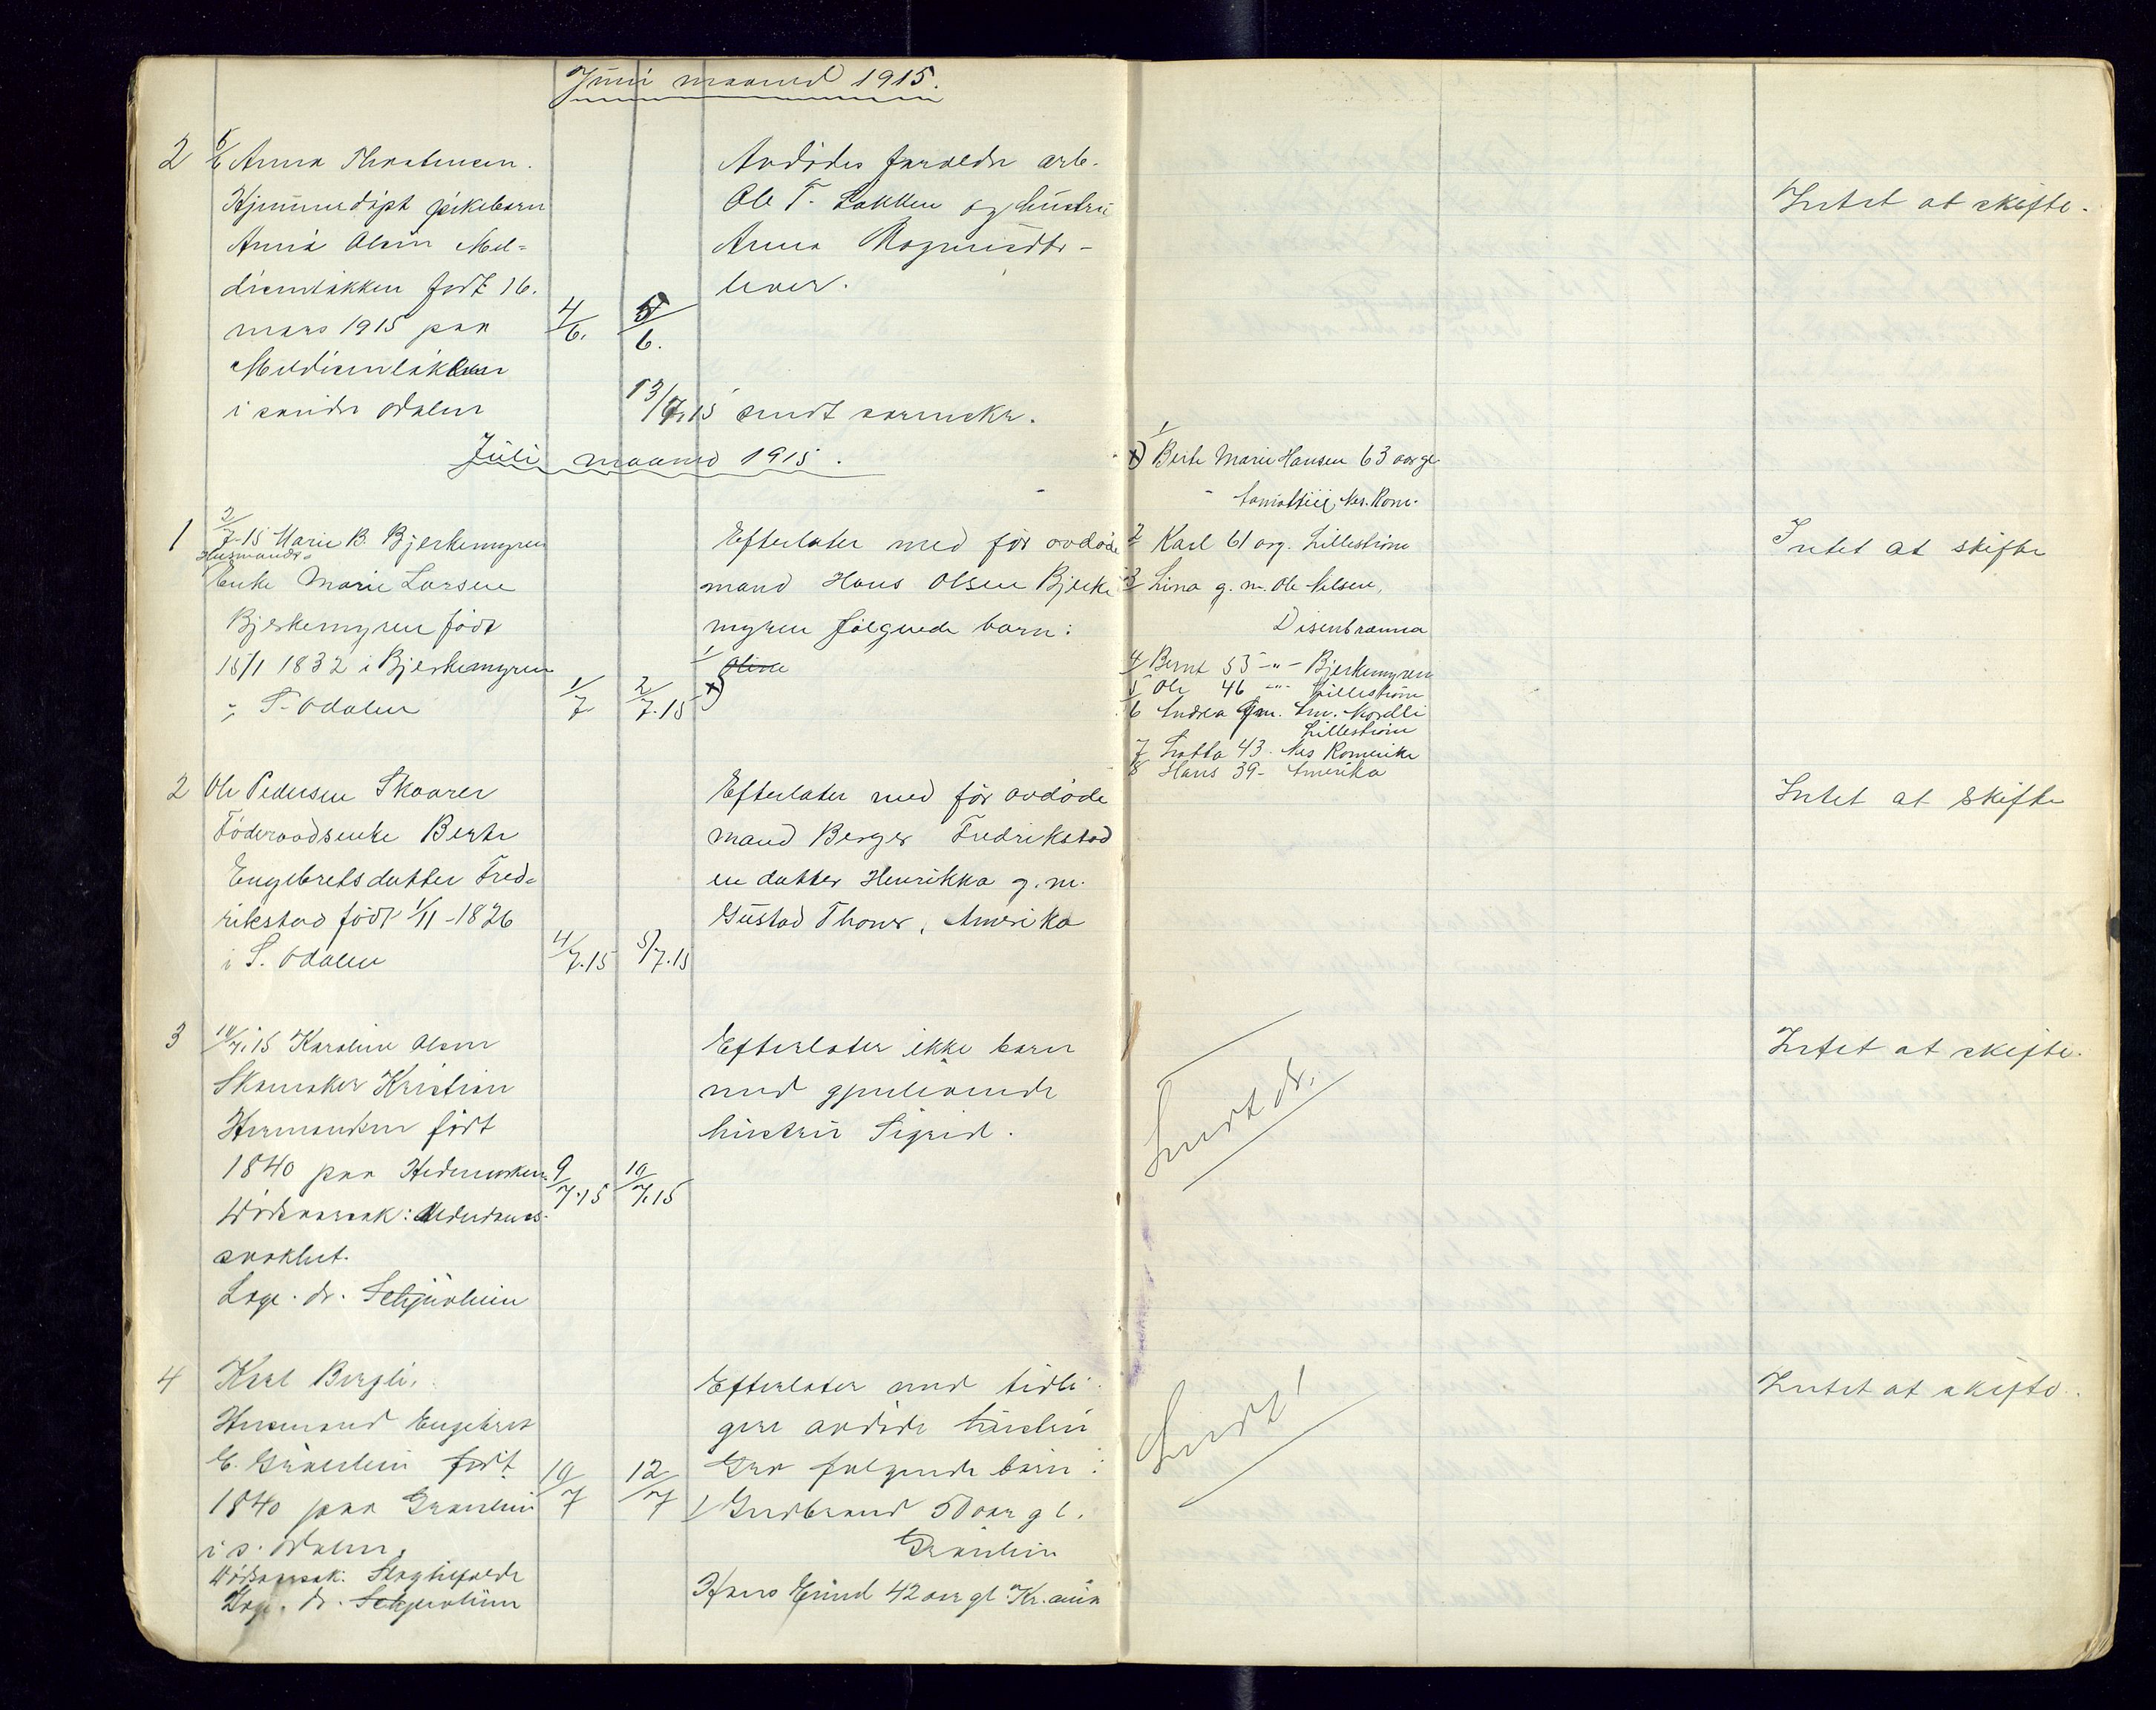 Juni maaned 1915.
2 5/6 Anna Thorstensen.
Hjemmedöpt pikebarn
Anna Olsen Mel-
diemlökken född 16.
mars 1915 paa
Meldiemlökken
i söndre Odalen
4/6.
5/6.
Avdödes foreldre arb.
Ole T. Løkken og hustru
Anna Magnusdtr
lever.
13/7.15 sendt sorenskr.
Intet at skifte.
Juli maaned 1915.
1 2/7-15 Marie B. Bjerkemyren
Husmands-
enke Marie Larsen
Bjerkemyren född
15/1 1832 i Bjerkemyren
i S. Odalen
1/7
2/7.15
Efterlater med för avdöde
mand Hans Olsen Bjerke
myren følgende barn:
1 Oline
x)
x) 1/ Berte Marie Hansen 63 aar gl.
Nes. Rom.
2 Karl 61 arg. Lilleström
3 Lina g. m. Ole Nilsen,
Disenbraanna
4/ Bernt 55 -"- Bjerkemyren
5 Ole 46 -"- Lilleström
6 Andrea g.m.
Lilleström
7 Lotta 43. Nes Romerike
8 Hans 39- Amerika
Intet at skifte
2 Ole Pedersen Skaarer
Föderaadsenke Berte
Engebretsdatter Fred-
rikstad född 1/11-1826
i S. Odalen
4/7.15
5/7.15
Efterlater med för avdöde
mand Berger Fredrikstad
en datter Henrikka g. m.
Gustad Thoner, Amerika
Intet at skifte
3 10/7.15 Karoline Olsen
Skomaker Kristian
Hermansen född
1840 paa Hedemarken
Dödsaarsak: Alderdoms-
svakhet.
Læge. dr. Schjoelien
9/7.15
10/7.15
Efterlater ikke barn
med gjenlevende
hustru Sigrid.
Sendt dr.
Intet at skifte.
4 Karl Bergli.
Husmand Engebret
E. Graaelien född
1840 paa Graalien
i s. Odalen.
Dödsaarsak: Slagtilfælde
Læge. dr. Schjoelien
10/7
12/7
Efterlater med tidli-
gere avdöde hustru
Gro følgende barn:
1/ Gudbrand 50 aar gl.
Graalien
Hans Erund 42 aar gl. Kr.ania
Sendt!
Intet at skifte.